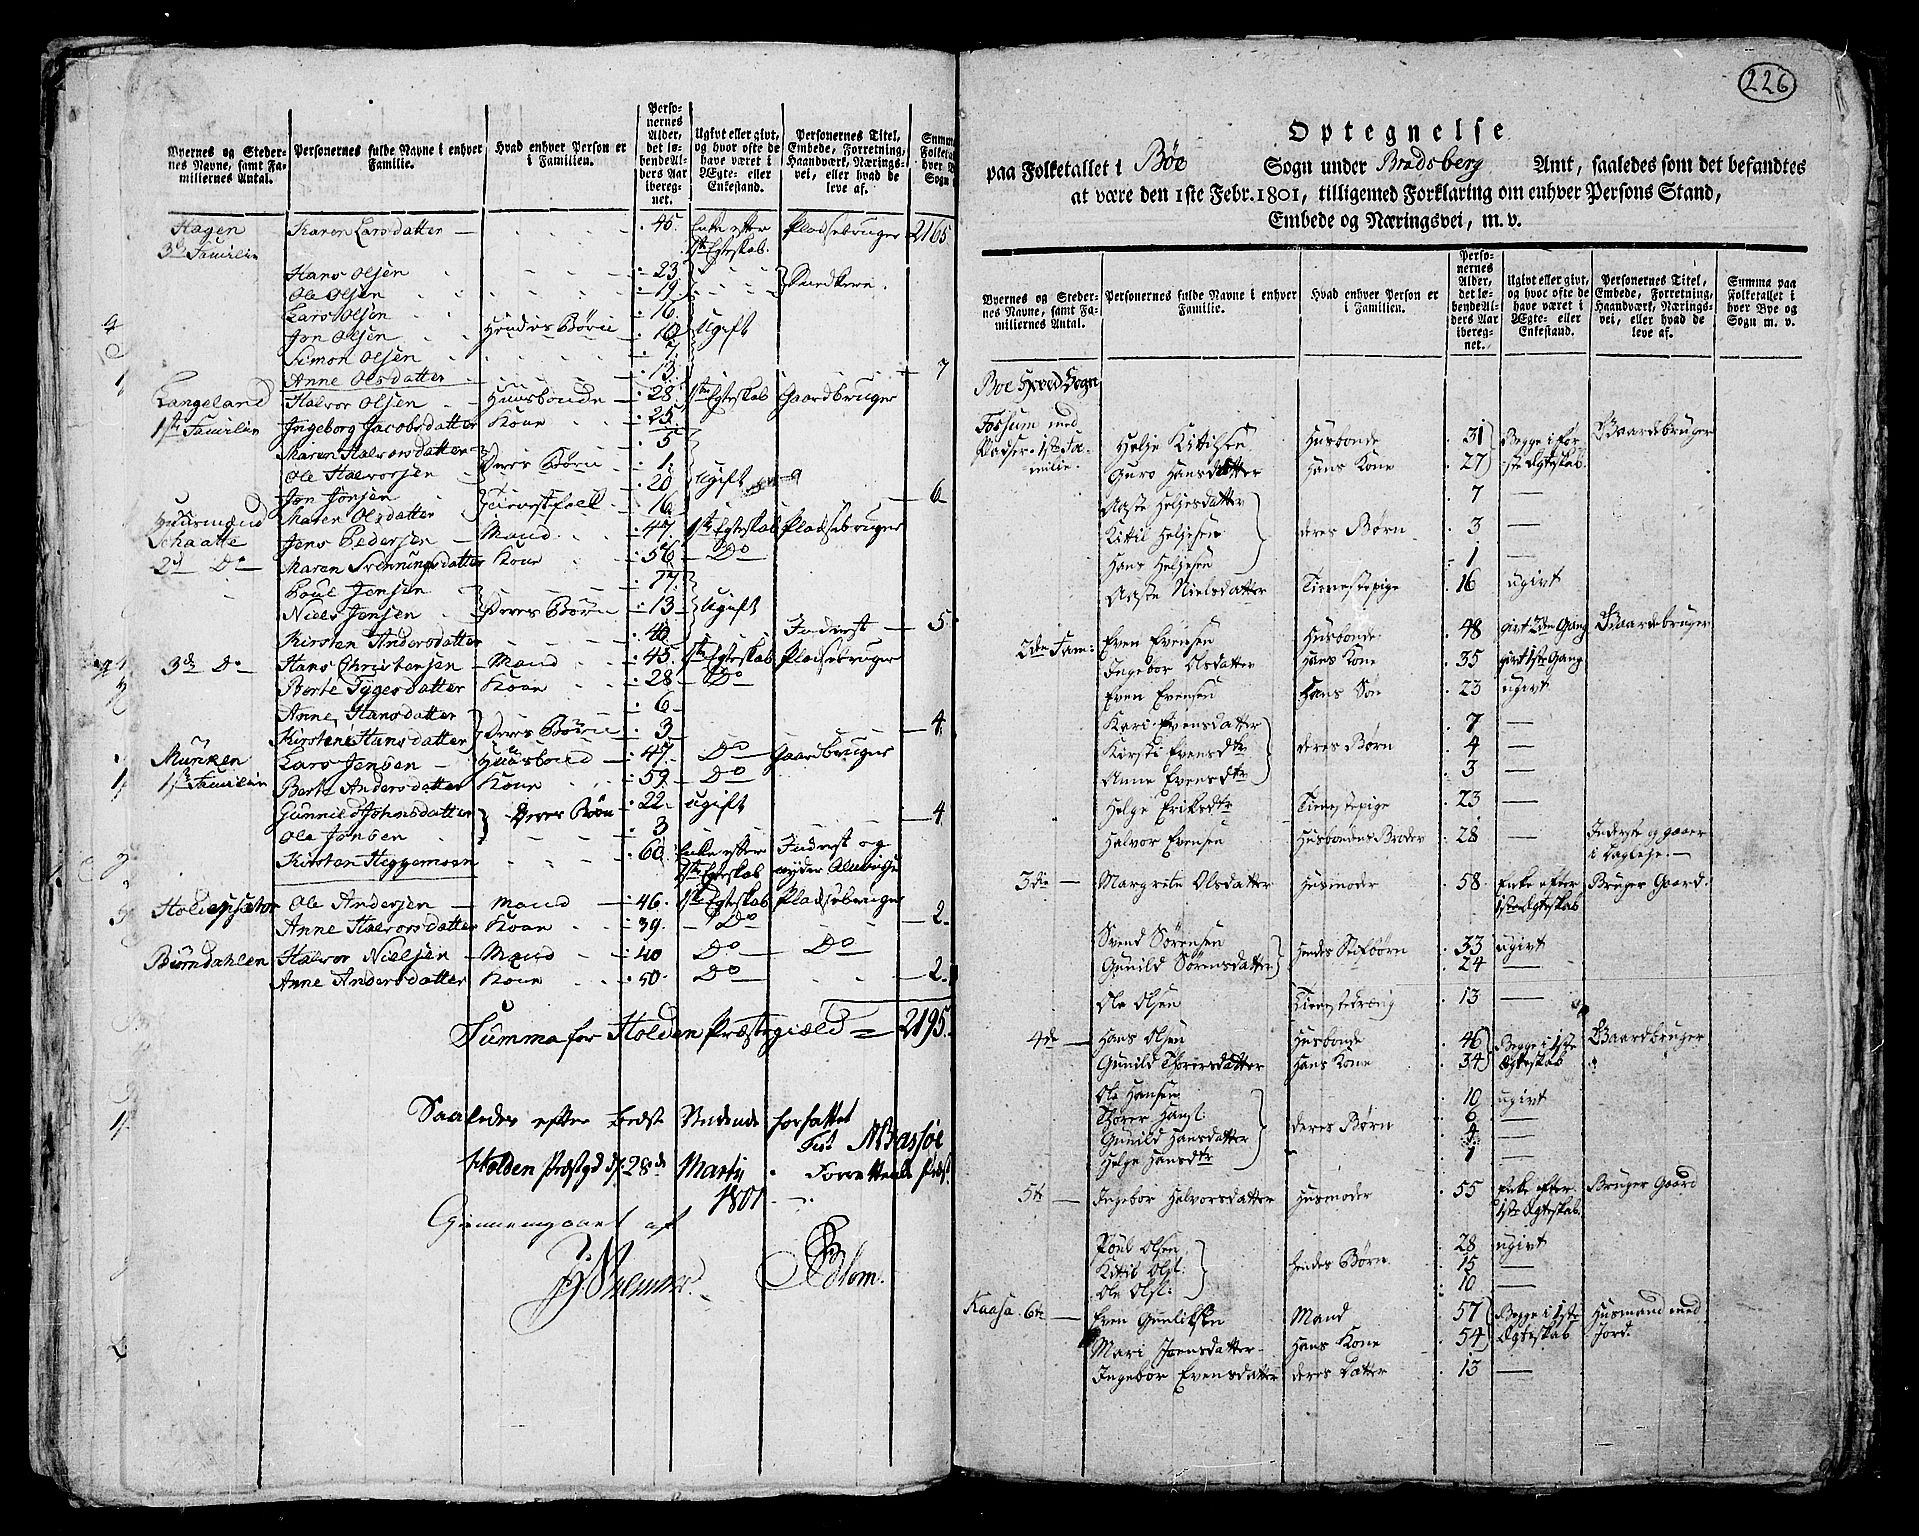 Byernes og Stedernes Navne, samt Familiernes Antal.
Personernes fulde Navne i enhver Familie.
Hvad enhver Person er i Familien.
Personernes Alder, det løbende Alders Aar iberegnet.
Ugivt eller givt, og hvor ofte de have været i Ægte- eller Enkestand.
Personernes Titel, Embede, Forretning, Haandværk, Næringsvei, eller hvad de leve af.
Hagen Karen Larsdatter — 45. Enke efter Pladsebruger 2165
3de Familie 1ste Egteskab.
Hans Olsen 23
Ole Olsen 19
Lars Olsen 16
Jon Olsen Hendes Børn 10 Ugift
Simon Olsen 7
Anne Olsdatter 13 7
Langeland Halvor Olsen Huusbonde 28 1ste Egteskab Gaardbruger
1ste Familie Ingeborg Jacobsdatter Kone 25
Maren Halvorsdatter 5
Ole Halvorsen Deres Børn 1
Jon Jonsen 20 Ugift
Maren Olsdatter 16 6
Huusmænd
Schaatte Jens Pedersen Mand 47 1ste Egteskab Pladsebruger
2d Do Maren Svenningsdatter Kone 56 Do
Poul Jensen 17
Niels Jensen Deres Børn 13 Ugift
Kirsten Andersdatter 40 Inderst 5
3de Do Hans Christensen Mand 45 1ste Egteskab Pladsebruger
Berte Tygesdatter Kone 28 Do
Anne Hansdatter 6
Kirsten Hansdatter Deres Børn 3 4
Munken Lars Jensen Huusbond 47 Do Gaardbruger
1ste Familie Berte Andersdatter Kone 59 Do
Gunnild Johnsdatter Deres Børn 22 ugift
Ole Jonsen 3 4
Kirsten Heggemoen 60 Enke efter Inderst og
1ste Egteskab nyder Almisse
Ole Andersen Mand 46 1ste Egteskab Pladsebruger
Anne Halvorsdatter Kone 39 Do 2
Biørndahlen Halvor Nielsen Mand 40 Do Do
Anne Andersdatter Kone 50 Do 2
Summa for Holden Præstegield = 2195.
Saaledes efter bedst Vidende forfattet
Holden Præstgd d. 28de Martij
1801
Giennemgaaet af
Blom.
226
Optegnelse
paa Folketallet i Bøe Sogn under Bradsberg Amt, saaledes som det befandtes
at være den 1ste Febr. 1801, tilligemed Forklaring om enhver Persons Stand,
Embede og Næringsvei, m. v.
Byernes og Stedernes Navne, samt Familiernes Antal.
Personernes fulde Navne i enhver Familie.
Hvad enhver Person er i Familien.
Personernes Alder, det løbende Alders Aar iberegnet.
Ugivt eller givt, og hvor ofte de have været i Ægte- eller Enkestand.
Personernes Titel, Embede, Forretning, Haandværk, Næringsvei, eller hvad de leve af.
Summa paa Folketallet i hver Bye og Sogn m. v.
Boe Hoved Sogn
Fossum med
Pladser. 1ste Fa- Helje Kittilsen Husbonde 31 Begge i før- Gaardebruger
milie. Guro Hansdatter Hans Kone 27 ste Ægteskab.
Aaste Heljesdatter 7 —
Kittil Heljesen deres Børn 3 —
Hans Heljesen 1
Aaste Nielsdatter Tienestepige 16 ugivt
2den Fam: Even Evensen Husbonde 48 givt 2den Gang Gaardebruger
Ingebor Olsdatter Hans Kone 35 givt 1ste Gang
Even Evensen Hans Søn 23 ugivt
Kari Evensdatter 7 —
Kirsti Evensdtr deres Børn 4 —
Anne Evensdtr 3 —
Helge Eriksdtr Tienestepige 23 —
Halvor Evensen Husbondes Broder 28 — Inderste og gaaer
i Dagleje. —
3die — Margrete Olsdatter Husmoder 58. Enke efter Bruger Gaard.
1ste Ægteskab
Svend Sørensen Hendes Stifbørn 33 ugivt
Gunild Sørensdatter 24 —
Ole Olsen Tienestedreng 13 —
4de — Hans Olsen Husbonde 46 Begge i 1ste Gaardbruger
Gunild Thorersdatter Hans Kone 34 Ægteskab
Ole Hansen 10 ugivt
Thorer Hansl: 6 —
Gunild Hansdatter deres Børn 4 —
Helge Hansdtr 1 —
5te — Ingebor Halvorsdatter Husmoder 55 Enke efter Bruger Gaard
1ste Ægteskab.
Poul Olsen 28 ugivt
Kittil Olsl: Hendes Børn 15 —
Ole Olsl: 10 —
Kaasa. 6te — Even Gunlikse Mand 57 Begge i 1ste Husmand med
Mari Jvensdatter Hans Kone 54 Ægteskab Jord.
Ingebor Evensdatter deres Datter 13 —